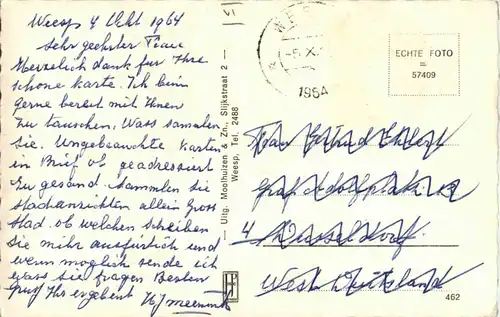 Weesp 4 Okt 1964
Sehr geehrter Frau
Herzelich dank fur Ihre
schone karte. Ich beim
gerne bereit mit Ihnen
zu tauschen. Wass sammlen
Sie. Ungebrauchte Karten
in Brief ob geadressiert
zu gesand. Sammlen Sie
stadtansichten allein Gross
stad. ob welchen schreiben
Sie mihr ausfurlich und
wenn moglich sende ich
wass sie fragen Besten
Gruss Ihr ergebent
VI
WE
-5.X.
1964
ECHTE FOTO
57409
— Uitg. Mooihuizen & Zn., Slijkstraat 2 —
Weesp, Tel. 2488
Frau Gertrud
Graf Adolfplatz 12
4 Düsseldorf
West Duitsland
462